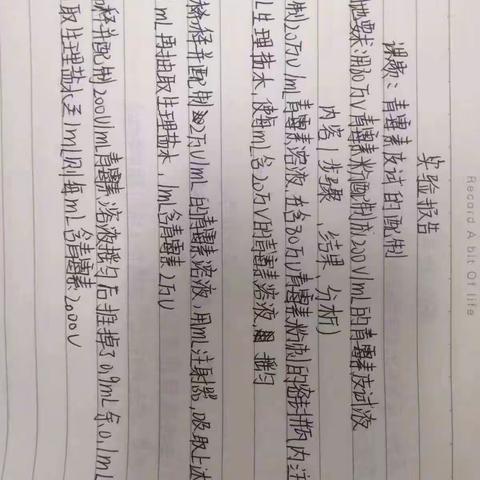 Record A bit Of life
实验报告
课题：青霉素皮试的配制
要求：用80万U青霉素粉配制成200U/mL的青霉素皮试液
内容(步骤、结果、分析)
制20万U/mL青霉素溶液，在含80万U青霉素粉剂的密封瓶内注
生理盐水，使每mL含20万U的青霉素溶液，摇匀
稀释并配制2万U/mL的青霉素溶液，用1mL注射器，吸取上述
mL再抽取生理盐水，1mL含青霉素2万U
稀释并配制2000U/mL青霉素溶液摇匀后推掉了0.9mL余0.1mL
取生理盐水至1mL则每mL含青霉素2000U